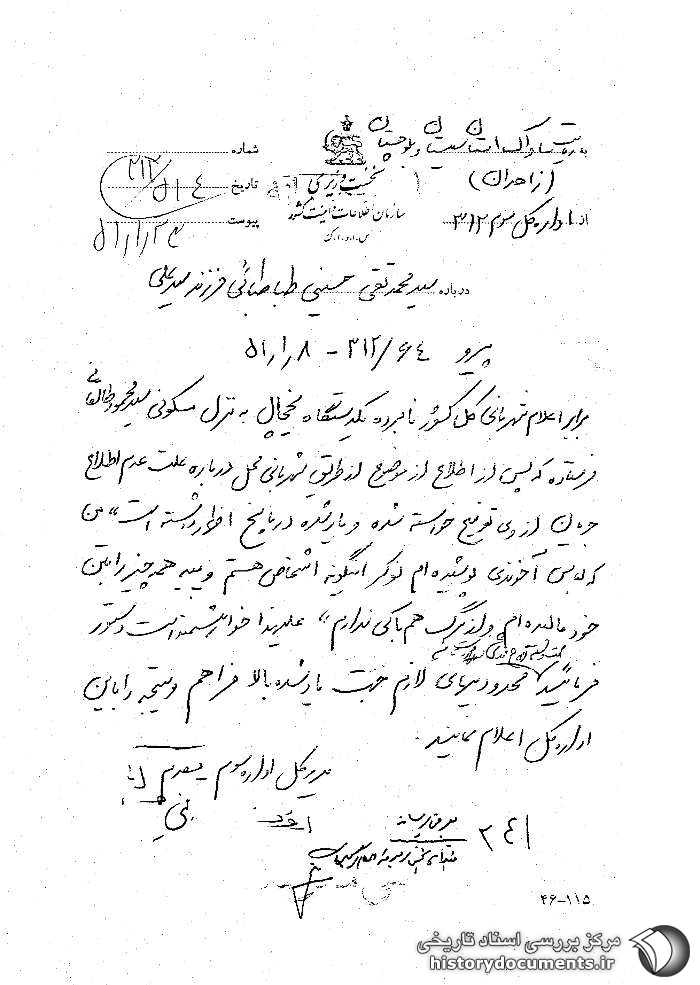 به ریاست ساواک استان سیستان و بلوچستان
(زاهدان)
از اداره کل سوم ۳۱۲
نخست وزیری
سازمان اطلاعات و امنیت کشور
س.ا.و.ا.ک
شماره
۳۱۲/۵۱۴
تاریخ
پیوست
۵۱/۱/۲۳
درباره سید محمد تقی حسینی طباطبائی فرزند سید علی
پیرو ۳۱۲/۶۴ - ۵۱/۱/۸
برابر اعلام شهربانی کل کشور نامبرده یکدستگاه یخچال به منزل مسکونی سید محمود طالقانی
فرستاده که پس از اطلاع از موضوع از طریق شهربانی محل درباره علت عدم اطلاع
جریان از وی توضیح خواسته شده و یادشده در پاسخ اظهار داشته است "من
که لباس آخوندی پوشیده‌ام نوکر اینگونه اشخاص هستم و پیه همه چیز را به تن
خود مالیده‌ام و از مرگ هم باکی ندارم" علیهذا خواهشمند است دستور
فرمائید محدودیتهای لازم جهت یادشده بالا فراهم و نتیجه را به این
اداره کل اعلام نمایند.
مدیر کل اداره سوم مقدم
۳۴۱
۴۶-۱۱۵
مرکز بررسی اسناد تاریخی
historydocuments.ir